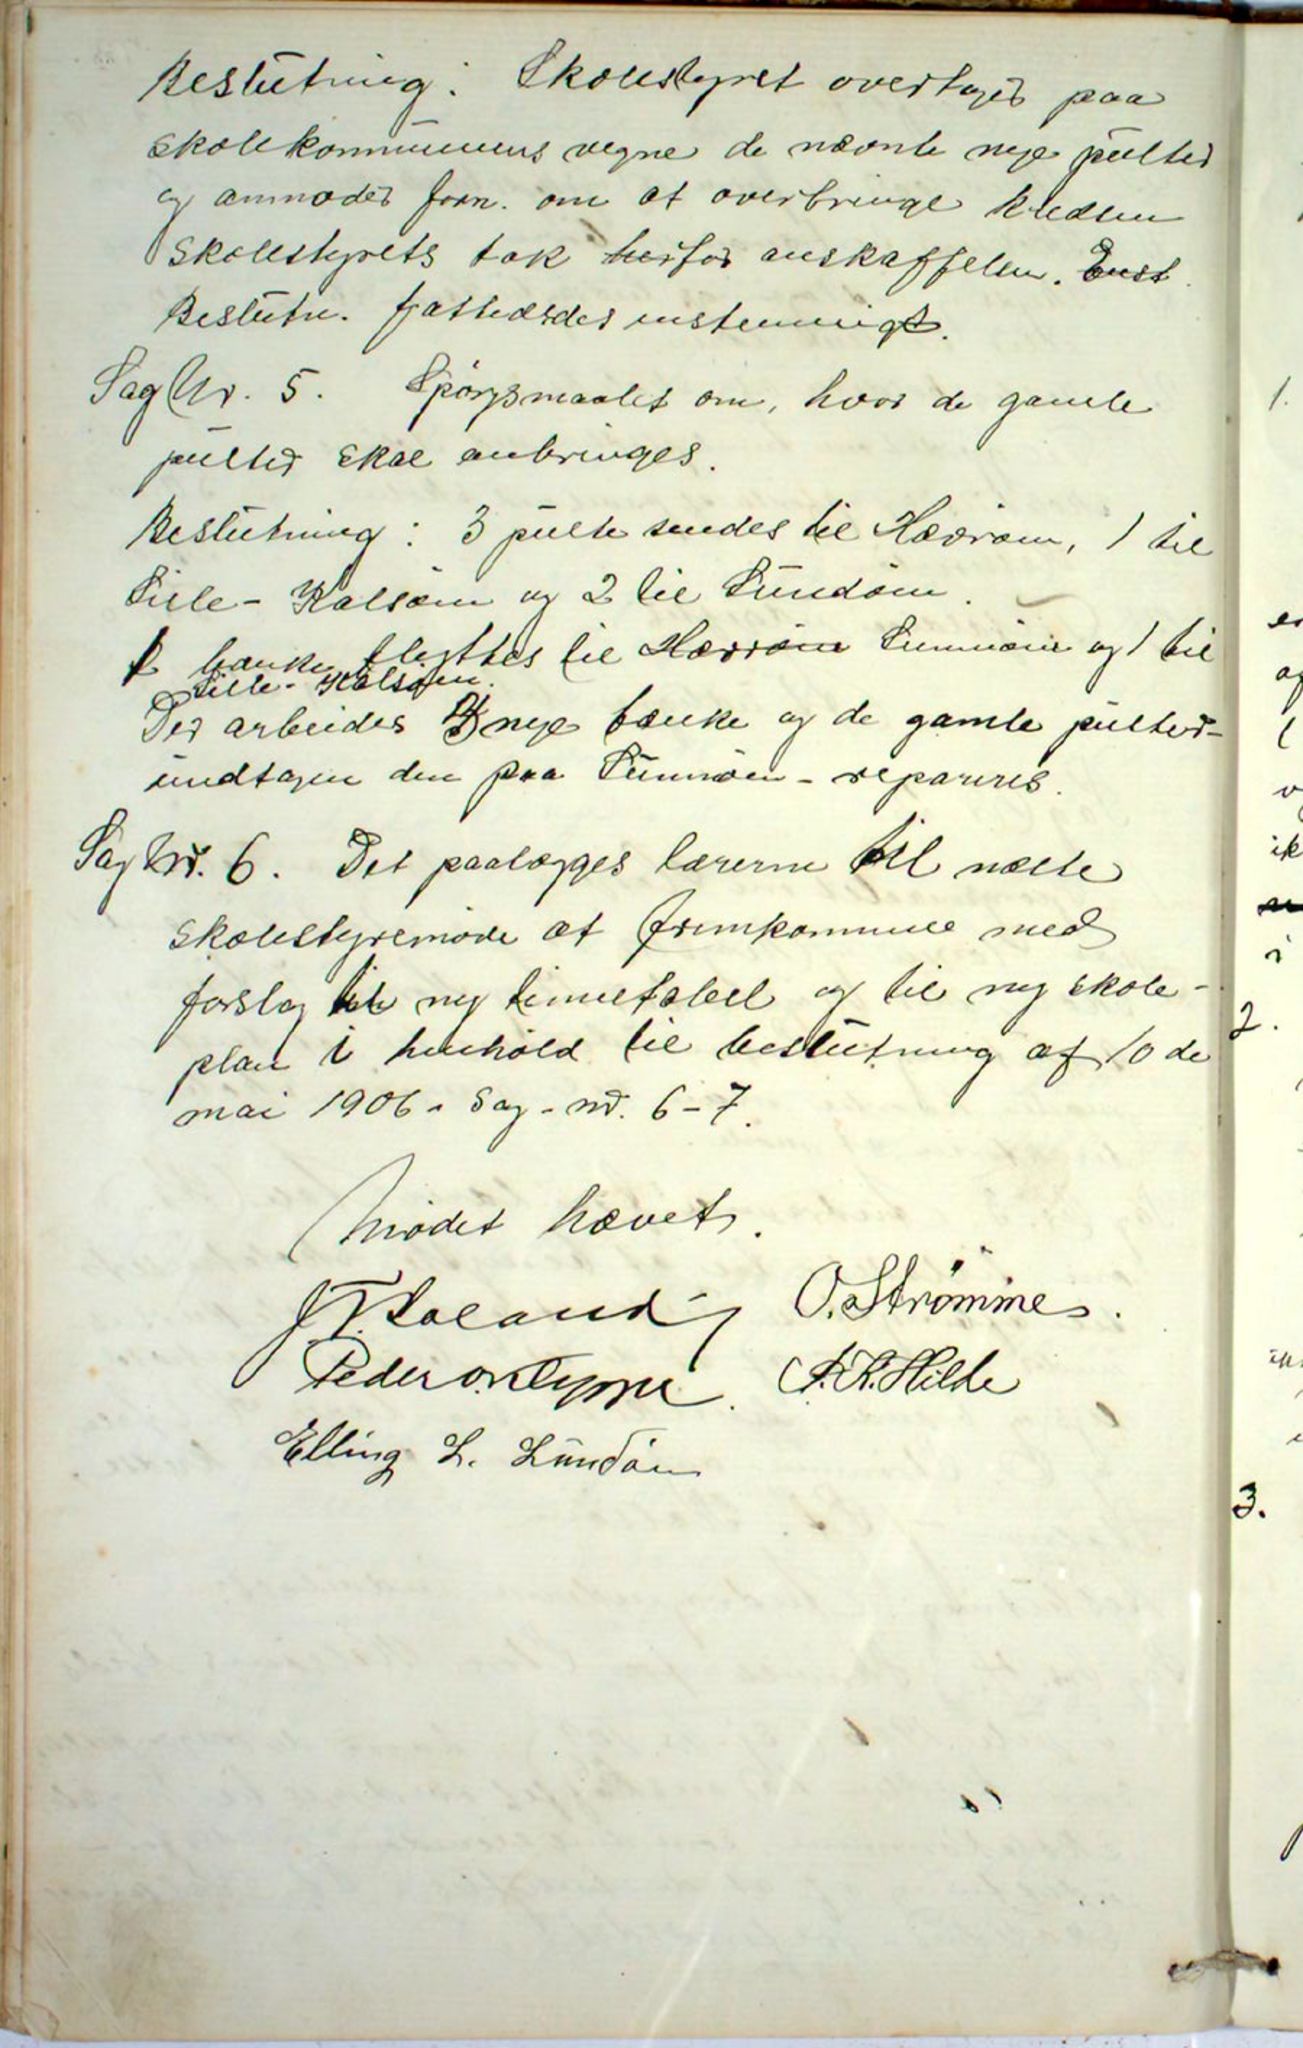 Beslutning: Skolestyret overtager paa
skolekommunens vegne de nævnte nye pulter
og anmoder form. om at overbringe kredsen
skolestyrets tak herfor anskaffelsen. Enst.
Beslutn. fattedes enstemmigt.
Sag Nr. 5. Spørgsmaalet om, hvor de gamle
pulter skal anbringes.
Beslutning: 3 pulte sendes til Hærøen, 1 til
Lille-Kalsøen og 2 til Sundøen.
bænke flyttes til Hærøen Simmøen og 1 til
Lille-Kalsøen.
Der arbeides nye bænke og de gamle pulter-
undtagen den paa Simmøen - repareres.
Sag Nr. 6. Det paalægges lærerne til næste
skolestyremøde at fremkomme med
forslag til ny timetabel og til ny skole-
plan i henhold til beslutning af 10 de
mai 1906 - Sag - nr. 6-7.
Mødet hævet.
O. Strømme.
Peder
P. R. Hilde
Elling L. Sundøen
1.
2.
3.